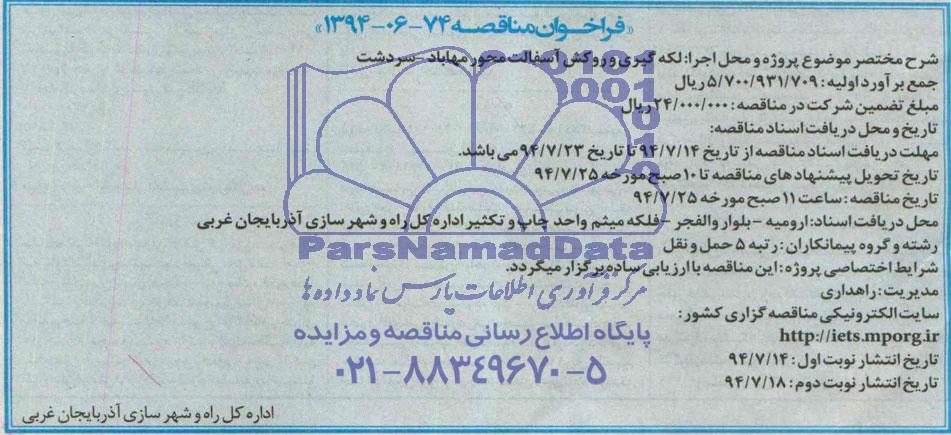 «فراخوان مناقصه ۷۴-۰۶-۱۳۹۴»
شرح مختصر موضوع پروژه و محل اجرا: لکه گیری و روکش آسفالت محور مهاباد - سردشت
جمع برآورد اولیه: ۵/۷۰۰/۹۳۱/۷۰۹ ریال
مبلغ تضمین شرکت در مناقصه: ۲۴/۰۰۰/۰۰۰ ریال
تاریخ و محل دریافت اسناد مناقصه:
مهلت دریافت اسناد مناقصه از تاریخ ۹۴/۷/۱۴ تا تاریخ ۹۴/۷/۲۳ می باشد.
تاریخ تحویل پیشنهادهای مناقصه تا ۱۰ صبح مورخه ۹۴/۷/۲۵
تاریخ مناقصه: ساعت ۱۱ صبح مورخه ۹۴/۷/۲۵
محل دریافت اسناد: ارومیه - بلوار والفجر - فلکه میثم واحد چاپ و تکثیر اداره کل راه و شهر سازی آذربایجان غربی
رشته و گروه پیمانکاران: رتبه ۵ حمل و نقل
شرایط اختصاصی پروژه: این مناقصه با ارزیابی ساده برگزار میگردد.
مدیریت: راهداری
سایت الکترونیکی مناقصه گزاری کشور:
http://iets.mporg.ir
تاریخ انتشار نوبت اول: ۹۴/۷/۱۴
تاریخ انتشار نوبت دوم: ۹۴/۷/۱۸
اداره کل راه و شهر سازی آذربایجان غربی
ParsNamadData
مرکز فرآوری اطلاعات پارس نماد داده ها
پایگاه اطلاع رسانی مناقصه و مزایده
۰۲۱-۸۸۳۴۹۶۷۰-۵